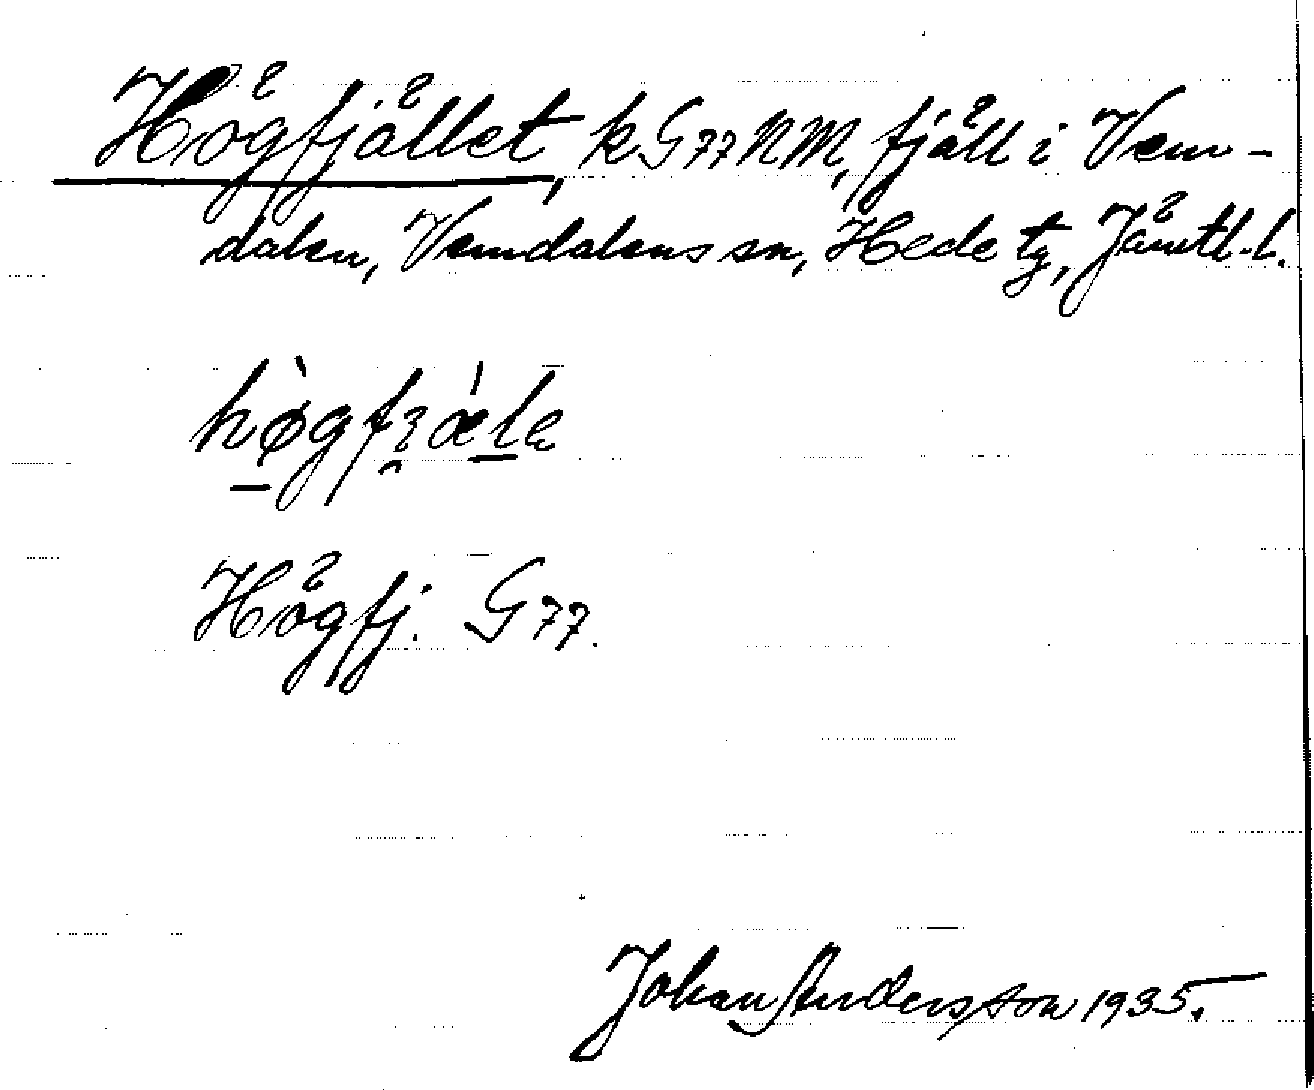 Högfjället, k G77 NM, fjäll i Vem-
dalen, Vemdalens sn, Hede tg, Jämtl. l.
Högfj. G77.
Johan Andersson 1935.